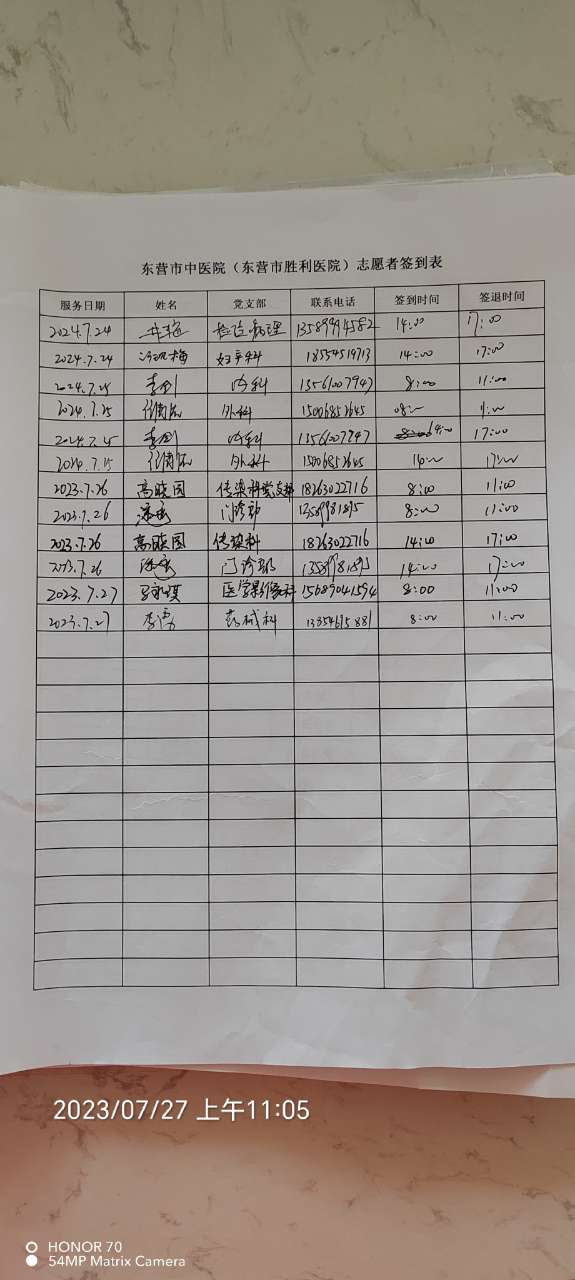 东营市中医院（东营市胜利医院）志愿者签到表
服务日期 姓名 党支部 联系电话 签到时间 签退时间
2024.7.24 检验病理 13589994582 14:00 17:00
2024.7.24 妇产科 18554519713 14:00 17:00
2024.7.25 李剑 内科 13561007947 8:00 11:00
2024.7.25 外科 15006852645 08:00 11:00
2024.7.25 李剑 内科 13561007947 14:00 17:00
2024.7.25 外科 15006852645 14:00 17:00
2023.7.26 高晓园 传染科党支部 18263022716 8:00 11:00
2023.7.26 门诊部 13589981895 8:00 11:00
2023.7.26 高晓园 传染科 18263022716 14:00 17:00
2023.7.26 门诊部 13589981895 14:00 17:00
2023.7.27 医学影像科 15689041594 8:00 11:00
2023.7.27 李勇 药械科 13354615881 8:00 11:00
2023/07/27 上午11:05
HONOR 70
54MP Matrix Camera